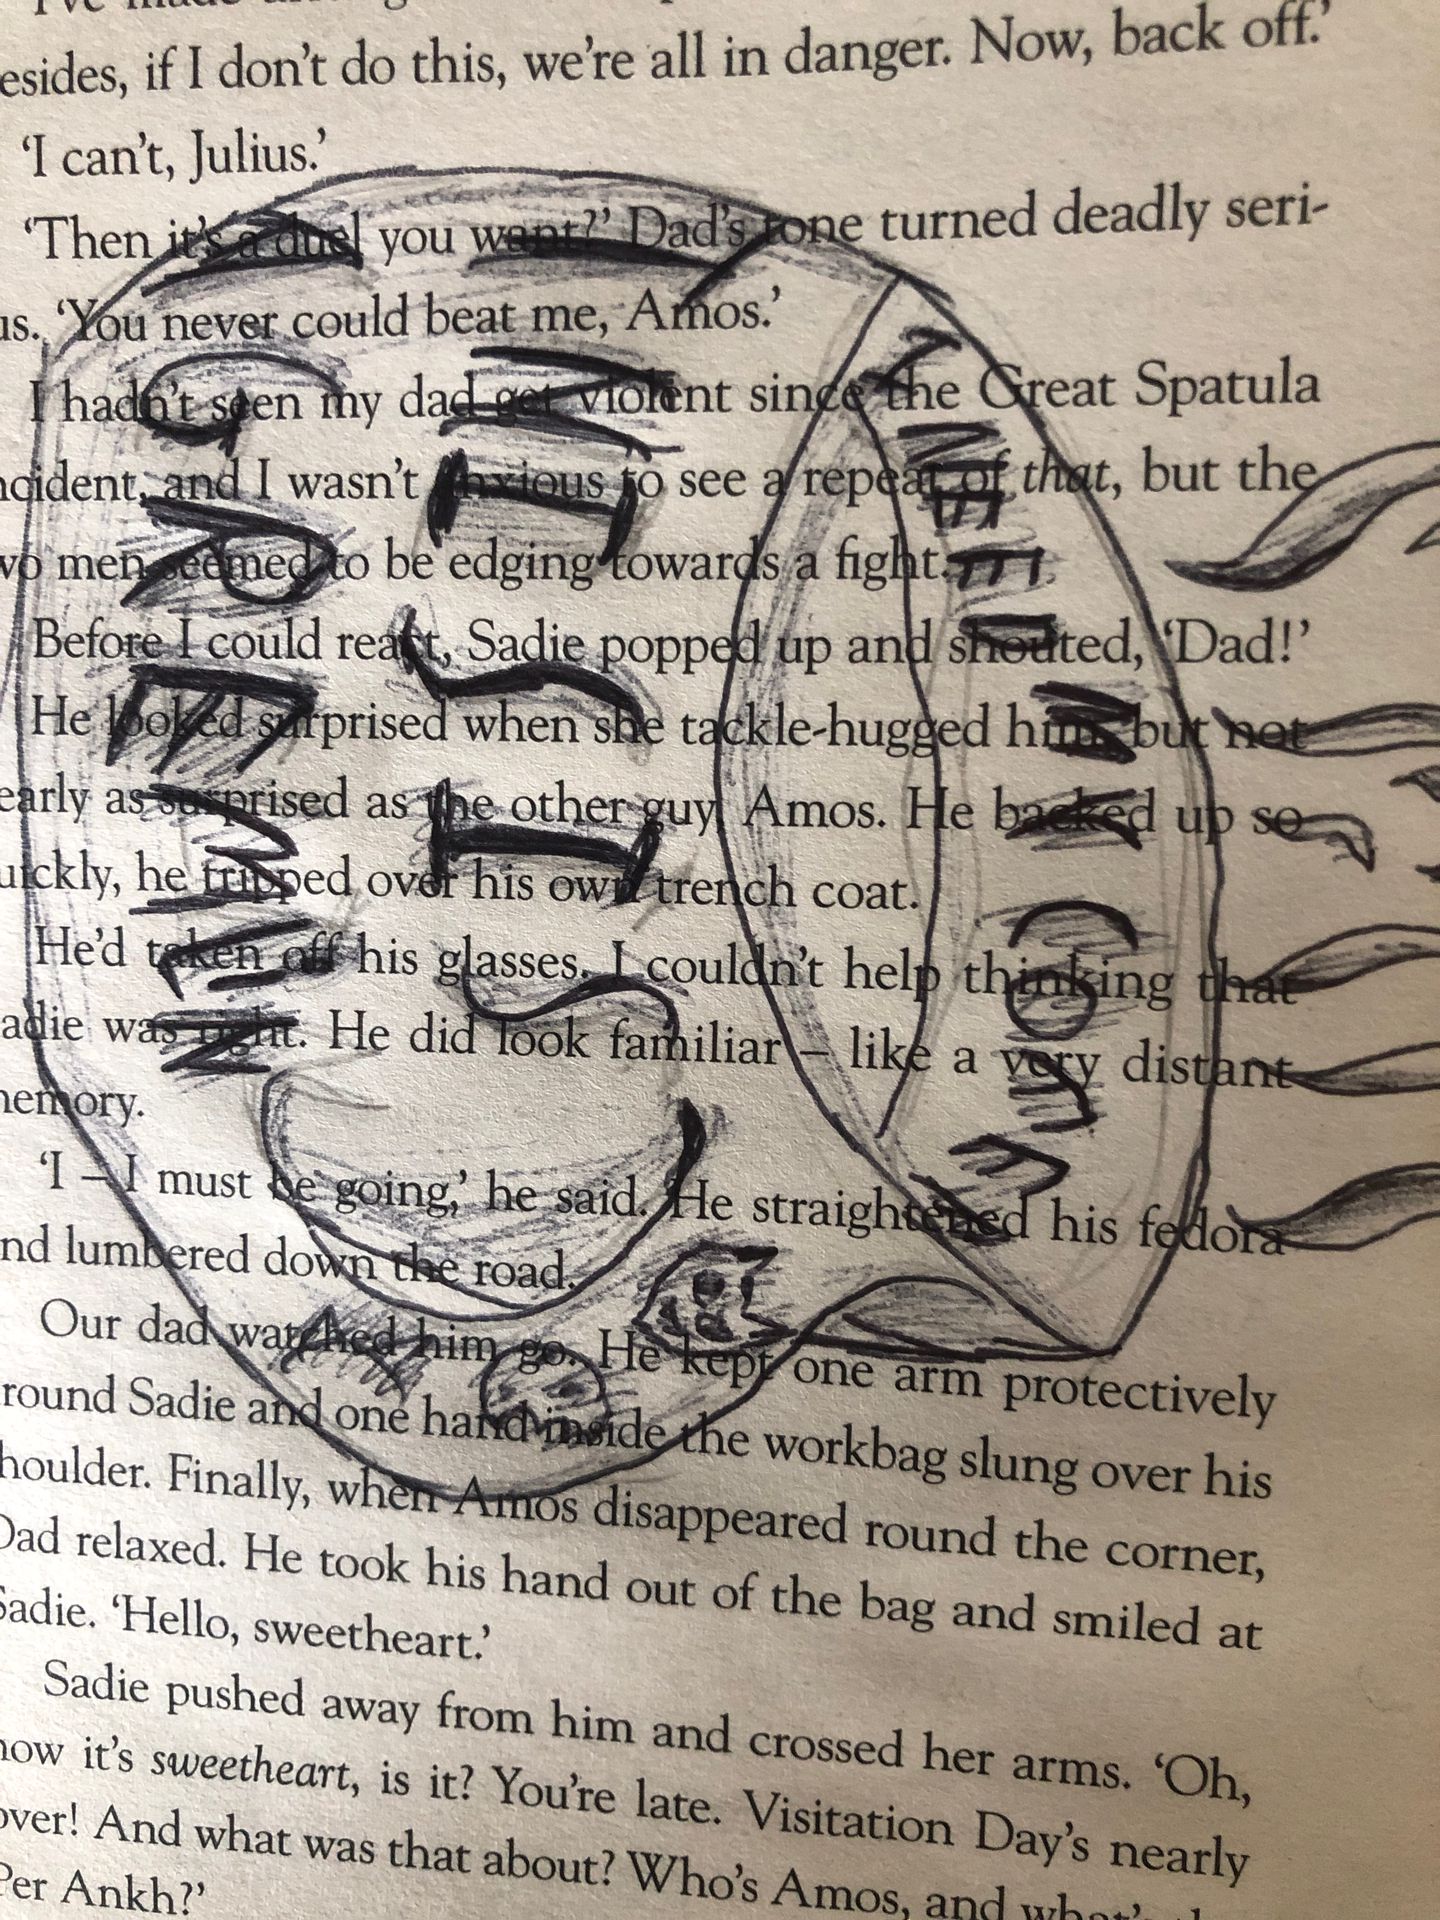 esides, if I don't do this, we're all in danger. Now, back off.'
'I can't, Julius.'
'Then it's a duel you want?' Dad's tone turned deadly seri-
us. 'You never could beat me, Amos.'
I hadn't seen my dad get violent since the Great Spatula
ncident, and I wasn't anxious to see a repeat of that, but the
wo men seemed to be edging towards a fight.
Before I could react, Sadie popped up and shouted, 'Dad!'
He looked surprised when she tackle-hugged him, but not
early as surprised as the other guy, Amos. He backed up so
uickly, he tripped over his own trench coat.
He'd taken off his glasses. I couldn't help thinking that
adie was right. He did look familiar – like a very distant
nemory.
'I – I must be going,' he said. He straightened his fedora
nd lumbered down the road.
Our dad watched him go. He kept one arm protectively
round Sadie and one hand inside the workbag slung over his
houlder. Finally, when Amos disappeared round the corner,
Dad relaxed. He took his hand out of the bag and smiled at
Sadie. 'Hello, sweetheart.'
Sadie pushed away from him and crossed her arms. 'Oh,
now it's sweetheart, is it? You're late. Visitation Day's nearly
over! And what was that about? Who's Amos, and what's
Per Ankh?'